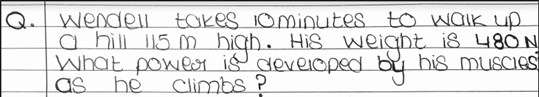 Q. Wendell takes 10 minutes to walk up
a hill 115 m high. His weight is 480N
What power is developed by his muscles
as he climbs?